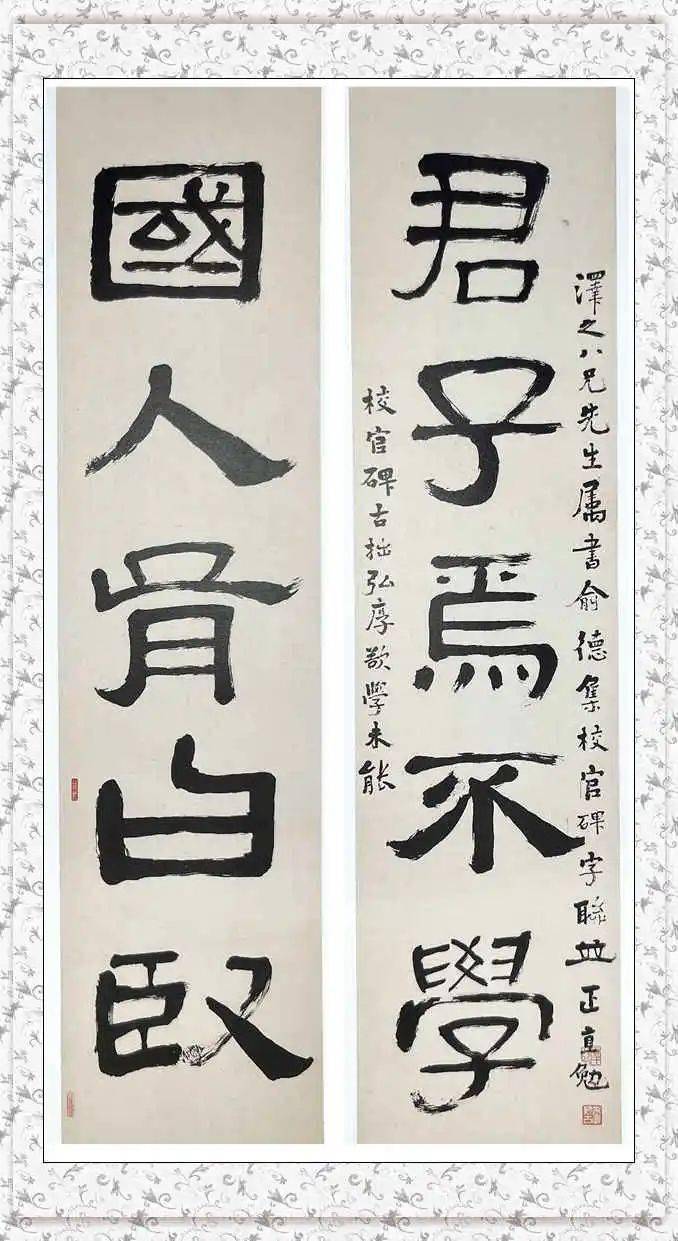 澤之八兄先生属書俞德集校官碑字聯並正直勉
君子焉不學
校官碑古拙弘厚歎學未能
國人胥曰臤